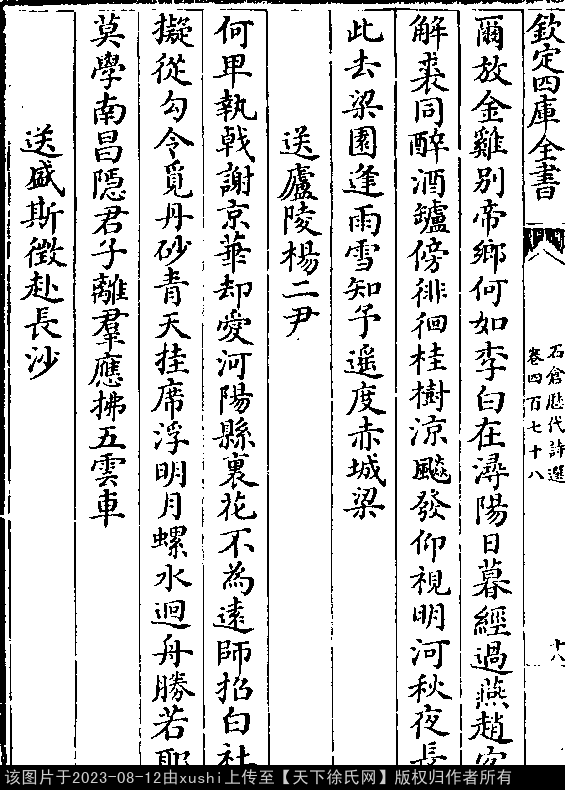 欽定四庫全書
石倉歷代詩選
卷四百七十八
十八
爾放金雞别帝鄉何如李白在潯陽日暮經過燕趙客
解裘同醉酒鑪傍徘徊桂樹涼飈發仰視明河秋夜長
此去梁園逢雨雪知予遥度赤城梁
送廬陵楊二尹
何年執戟謝京華却愛河陽縣裏花不為遠師招白社
擬從勾令覓丹砂青天挂席浮明月螺水迴舟勝若耶
莫學南昌隠君子離羣應拂五雲車
送盛斯徴赴長沙
该图片于2023-08-12由xushi上传至【天下徐氏网】版权归作者所有